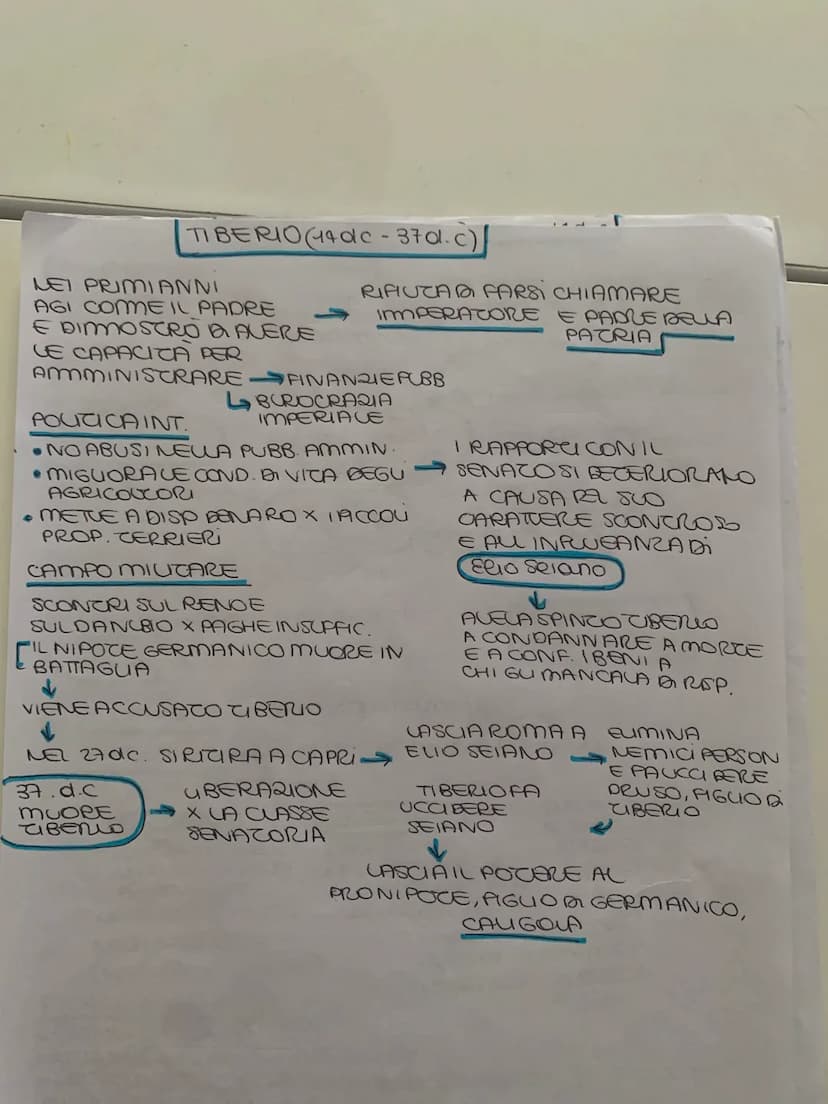 TIBERIO (14 d.C - 37 d.C)
NEI PRIMI ANNI
AGI COME IL PADRE
E DIMOSTRÒ DI AVERE
LE CAPACITÀ PER
AMMINISTRARE → FINANZIE PUBB
↳ BUROCRAZIA
IMPERIALE
→ RIFIUTA DI FARSI CHIAMARE
IMMPERATORE E PADRE DELLA
PATRIA
POLITICA INT.
• NO ABUSI NELLA PUBB. AMMIN.
• MIGLIORA LE COND. DI VITA DEGLI
AGRICOLTORI
• METTE A DISP DENARO X I PICCOLI
PROP. TERRIERI
→ I RAPPORTI CON IL
SENATO SI DETERIORANO
A CAUSA DEL SUO
CARATTERE SCONTROSO
E ALL INFLUEANZA DI
ELIO SEIANO
↓
AVEVA SPINTO TIBERIO
A CONDANNARE A MORTE
E A CONF. I BENI A
CHI GLI MANCAVA DI RISP.
CAMPO MILITARE
SCONTRI SUL RENOE
SUL DANUBIO X PAGHE INSUFFIC.
[IL NIPOTE GERMANICO MUORE IN
BATTAGLIA
↓
VIENE ACCUSATO TIBERIO
↓
NEL 27 d.C. SI RITIRA A CAPRI →
LASCIA ROMA A
ELIO SEIANO →
ELIMINA
NEMICI PERSON
E FA UCCIDERE
DRUSO, FIGLIO DI
TIBERIO
↙
TIBERIO FA
UCCIDERE
SEIANO
↓
LASCIA IL POTERE AL
PRONIPOTE, FIGLIO DI GERMANICO,
CALIGOLA
37 .d.C
MUORE
TIBERIO
→ LIBERAZIONE
X LA CLASSE
SENATORIA